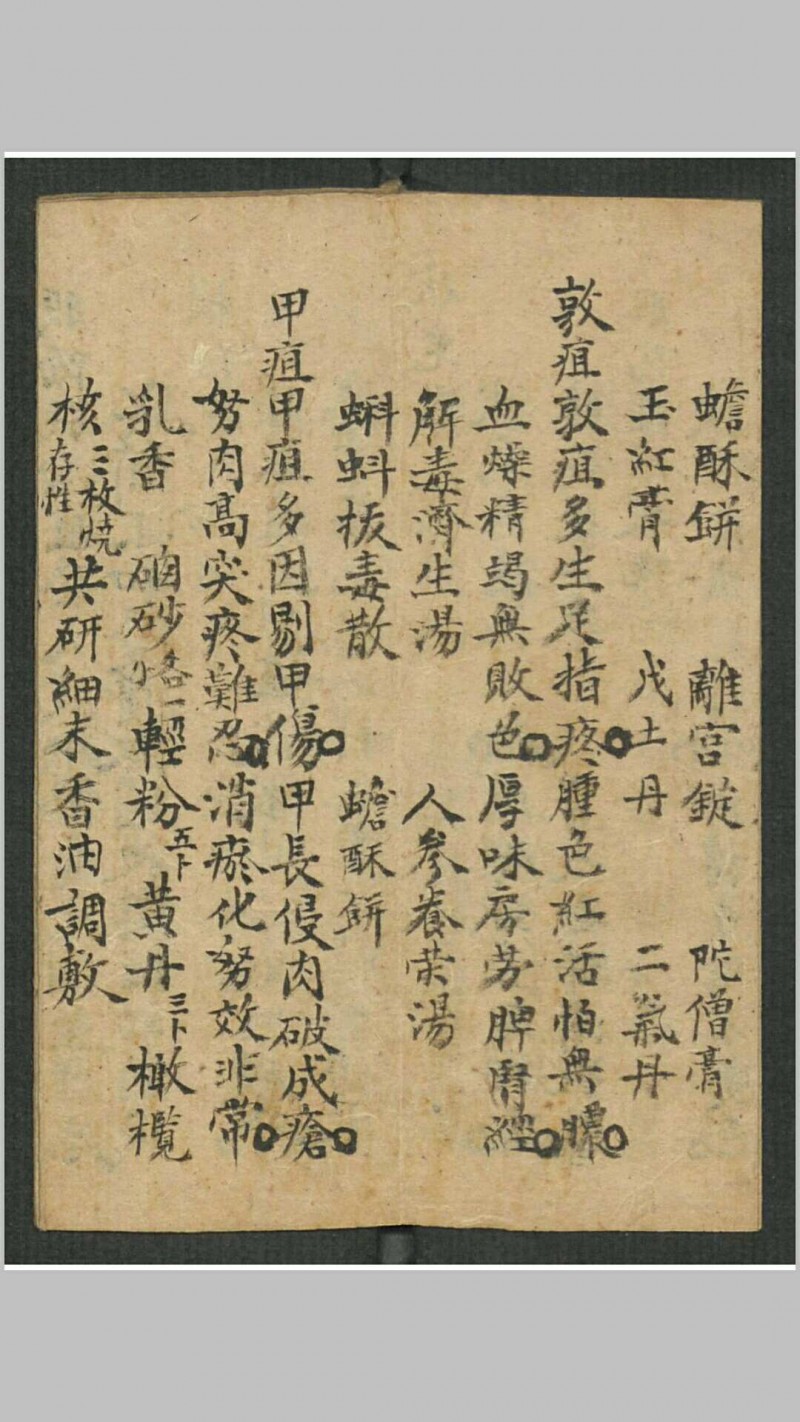 蟾酥餅　離宮錠　陀僧膏
玉紅膏　戊土丹　二氣丹
敦疽敦疽多生足指疼○腫色紅活怕無膿○
血燥精竭無敗色○厚味房劳脾腎經○
解毒濟生湯　人參養荣湯
蝌蚪拔毒散　蟾酥餅
甲疽甲疽多因剔甲傷○甲長侵肉破成瘡○
努肉高突疼難忍○消瘀化努效非常○
乳香　硇砂各一輕粉五卜黃丹三卜橄欖
核三枚烧存性共研細末香油調敷